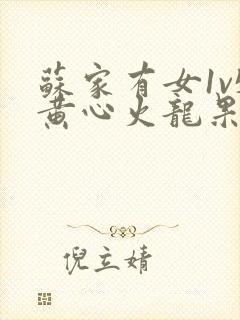 蘇家有女1v
黃心火龍果
倪立婧